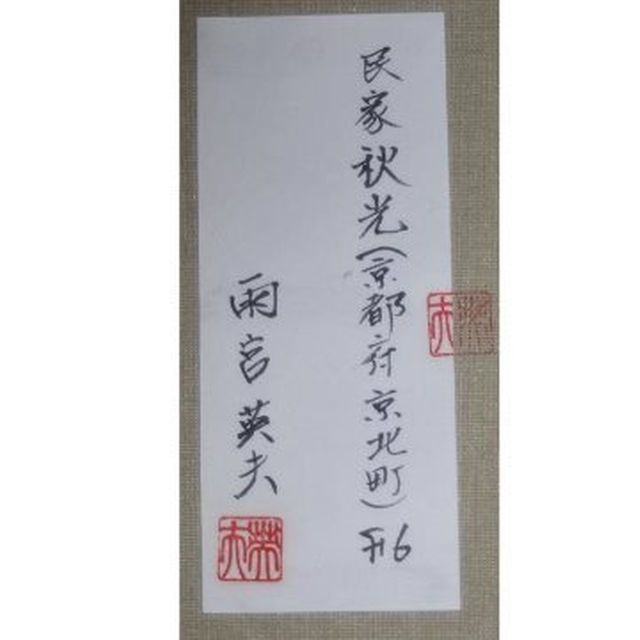 民家秋光(京都府京北町) F6
雨宮英夫
英夫
英夫